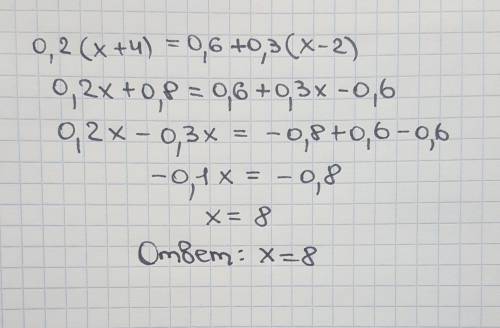 0,2(x+4) = 0,6+0,3(x-2)
0,2x+0,8 = 0,6+0,3x-0,6
0,2x-0,3x = -0,8+0,6-0,6
-0,1x = -0,8
x = 8
Ответ: x=8